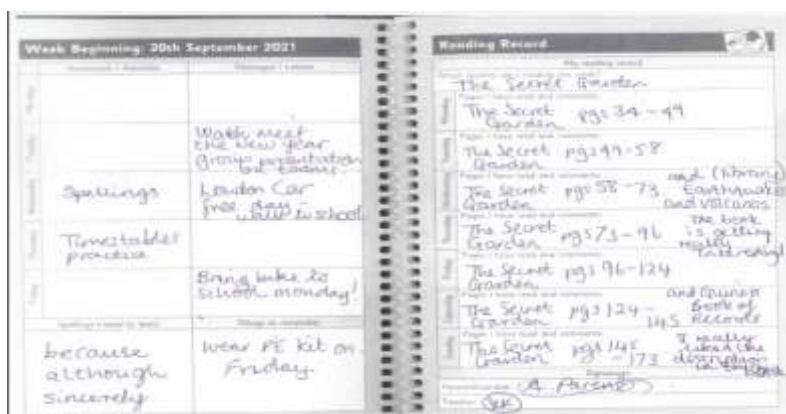 Week Beginning: 20th September 2021
Watch meet
the new year
group presentation
Spellings
London Car
free day -
walk to school
Timestables
practice
Bring bike to
school monday!
because
although
sincerely
Wear PE kit on
Friday
Reading Record
My reading record
The Secret Garden
The Secret Garden pgs 34-49
The Secret Garden pgs 49-58
The Secret Garden pgs 58-73
and (library)
Earthquakes
and Volcanos
The Secret Garden pgs 73-96
The book
is getting
really
interesting!
The Secret Garden pgs 96-124
The Secret Garden pgs 124-145
Book of
Records
The Secret Garden pgs 145-173
I really
liked the
description
A Parent